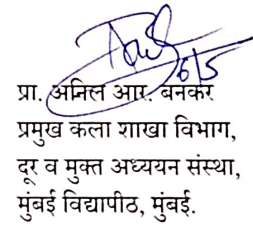 6/5
प्रा. अनिल आर. बनकर
प्रमुख कला शाखा विभाग,
दूर व मुक्त अध्ययन संस्था,
मुंबई विद्यापीठ, मुंबई.